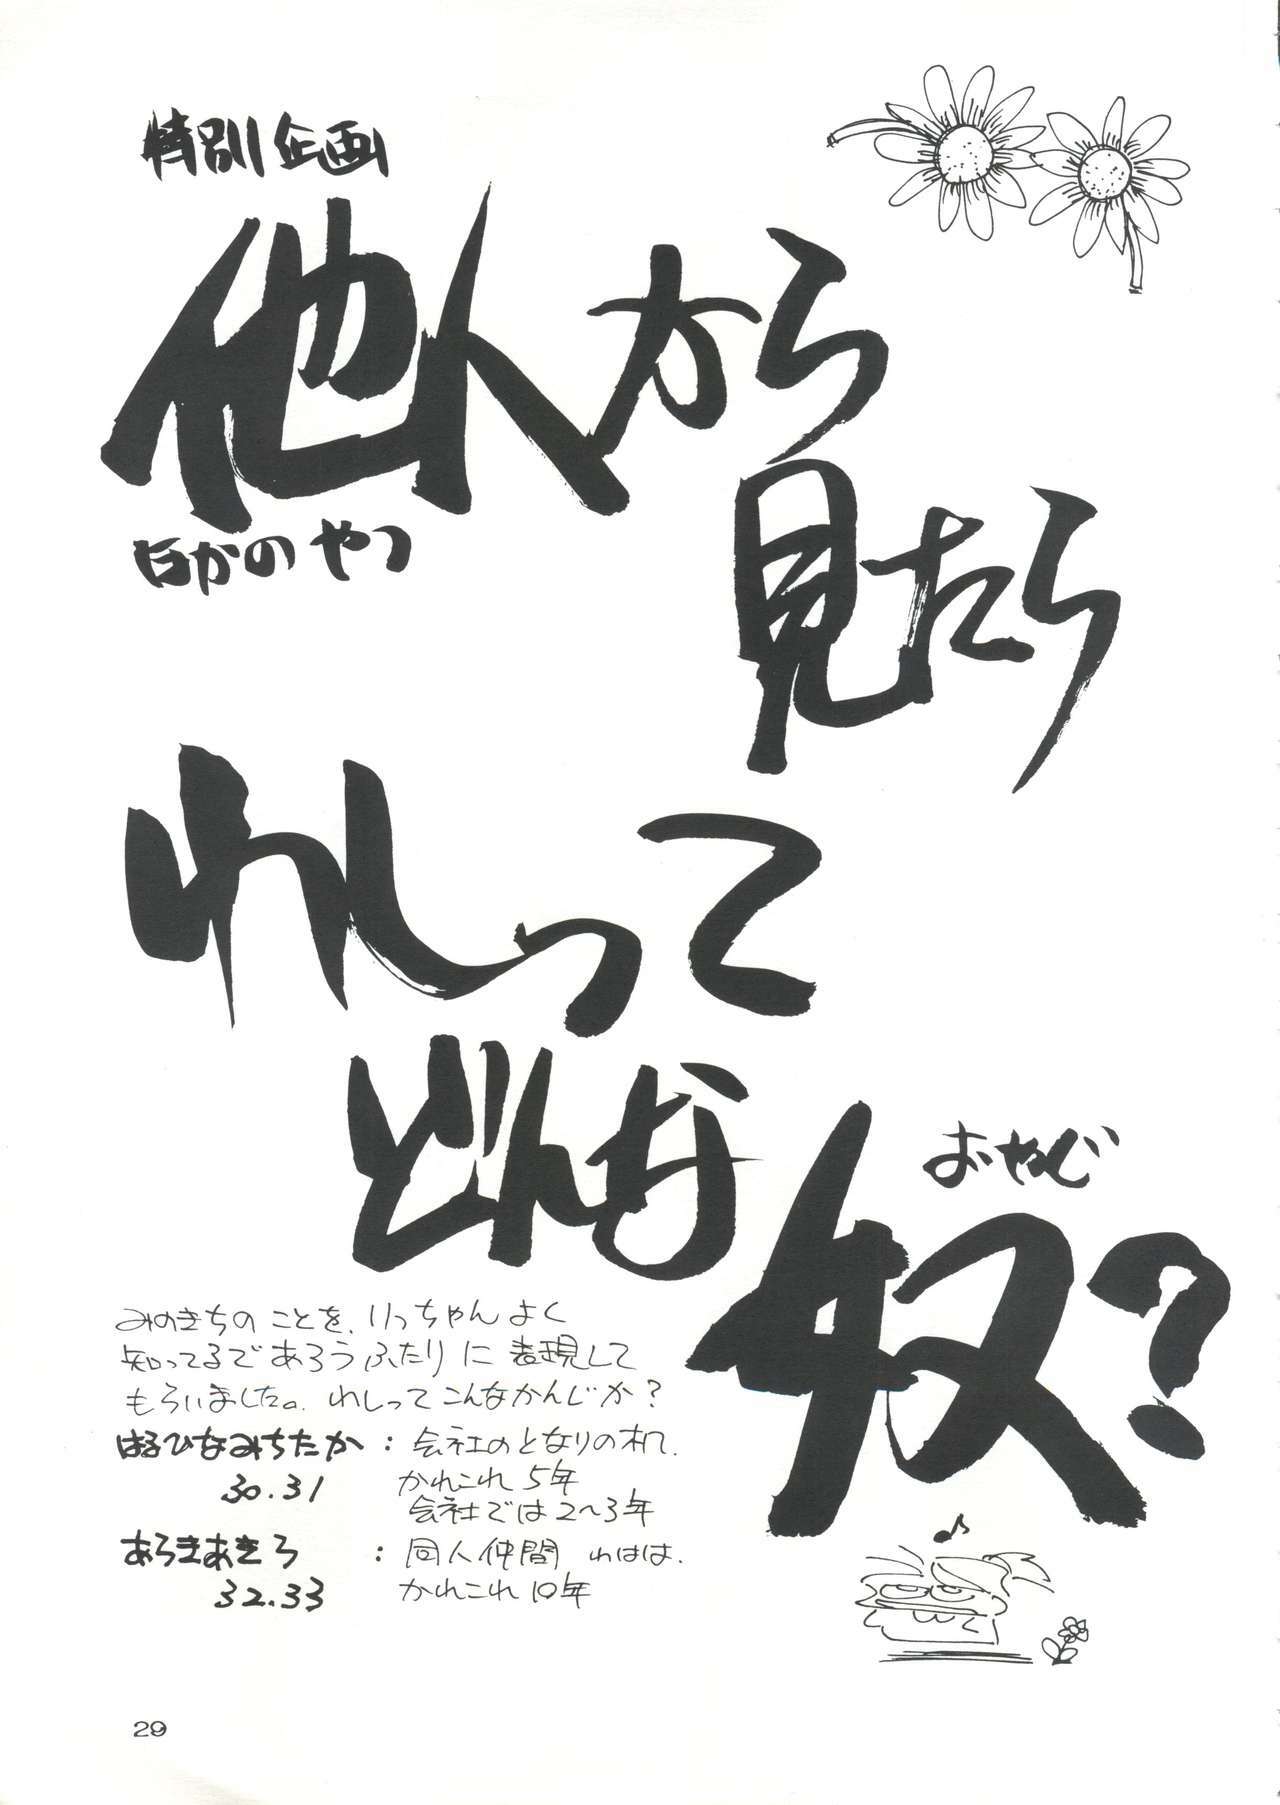 特別企画
他人から
ほかのやつ
見たら
わしって
どんな
おやじ
奴?
みのきちのことを、いっちゃんよく
知ってるであろうふたりに表現して
もらいました。わしってこんなかんじか?
はるひなみちたか : 会社のとなりの机。
30.31 かれこれ5年
会社では2〜3年
あらきあきら : 同人仲間 わはは.
32.33 かれこれ10年
29